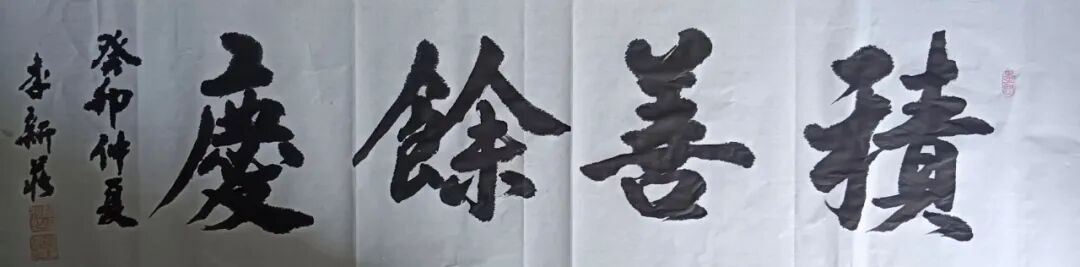 積善餘慶
癸卯仲夏
李新莊